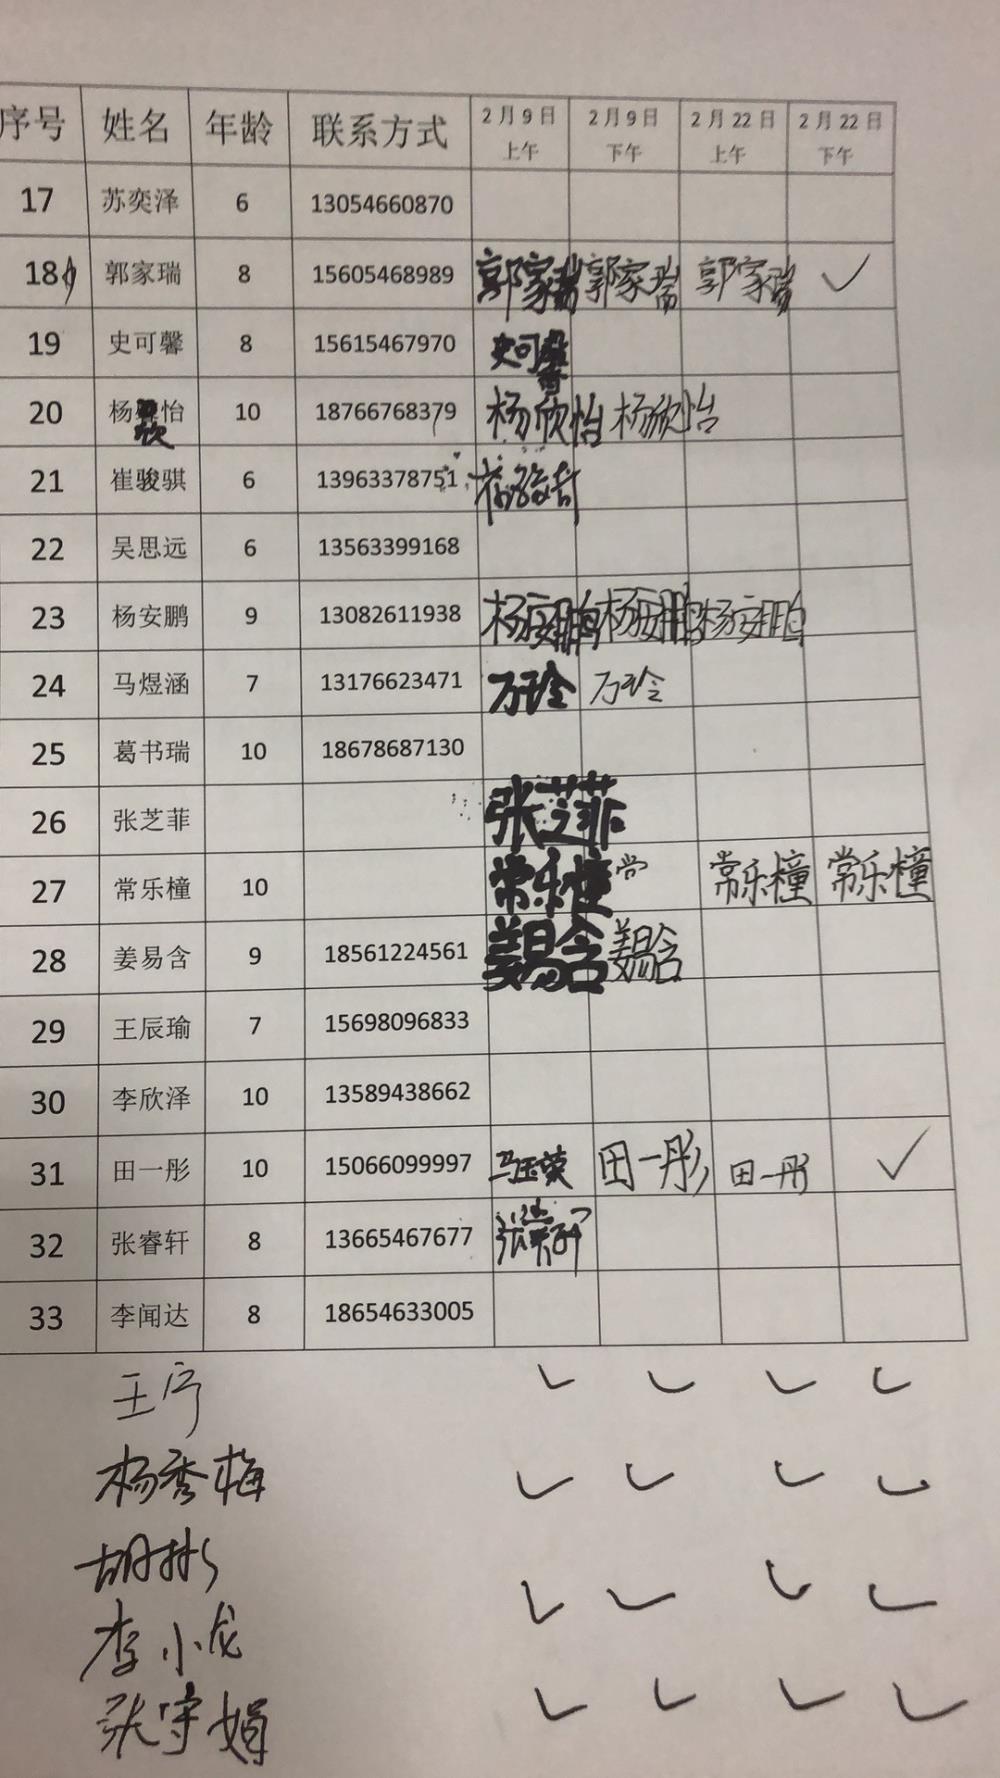 序号 姓名 年龄 联系方式 2月9日上午 2月9日下午 2月22日上午 2月22日下午
17 苏奕泽 6 13054660870
18 郭家瑞 8 15605468989 郭家瑞 郭家瑞 郭家瑞 ✓
19 史可馨 8 15615467970 史可馨
20 杨欣怡 10 18766768379 杨欣怡 杨欣怡
21 崔骏骐 6 13963378751
22 吴思远 6 13563399168
23 杨安鹏 9 13082611938 杨安鹏 杨安鹏 杨安鹏
24 马煜涵 7 13176623471 万玲 万玲
25 葛书瑞 10 18678687130
26 张芝菲 张芝菲
27 常乐橦 10 常乐橦 常 常乐橦 常乐橦
28 姜易含 9 18561224561 姜易含 姜易含
29 王辰瑜 7 15698096833
30 李欣泽 10 13589438662
31 田一彤 10 15066099997 马玉荣 田一彤 田一彤 ✓
32 张睿轩 8 13665467677
33 李闻达 8 18654633005
王宁 ✓ ✓ ✓ ✓
杨秀梅 ✓ ✓ ✓ ✓
胡彬
李小龙 ✓ ✓ ✓ ✓
张守娟 ✓ ✓ ✓ ✓